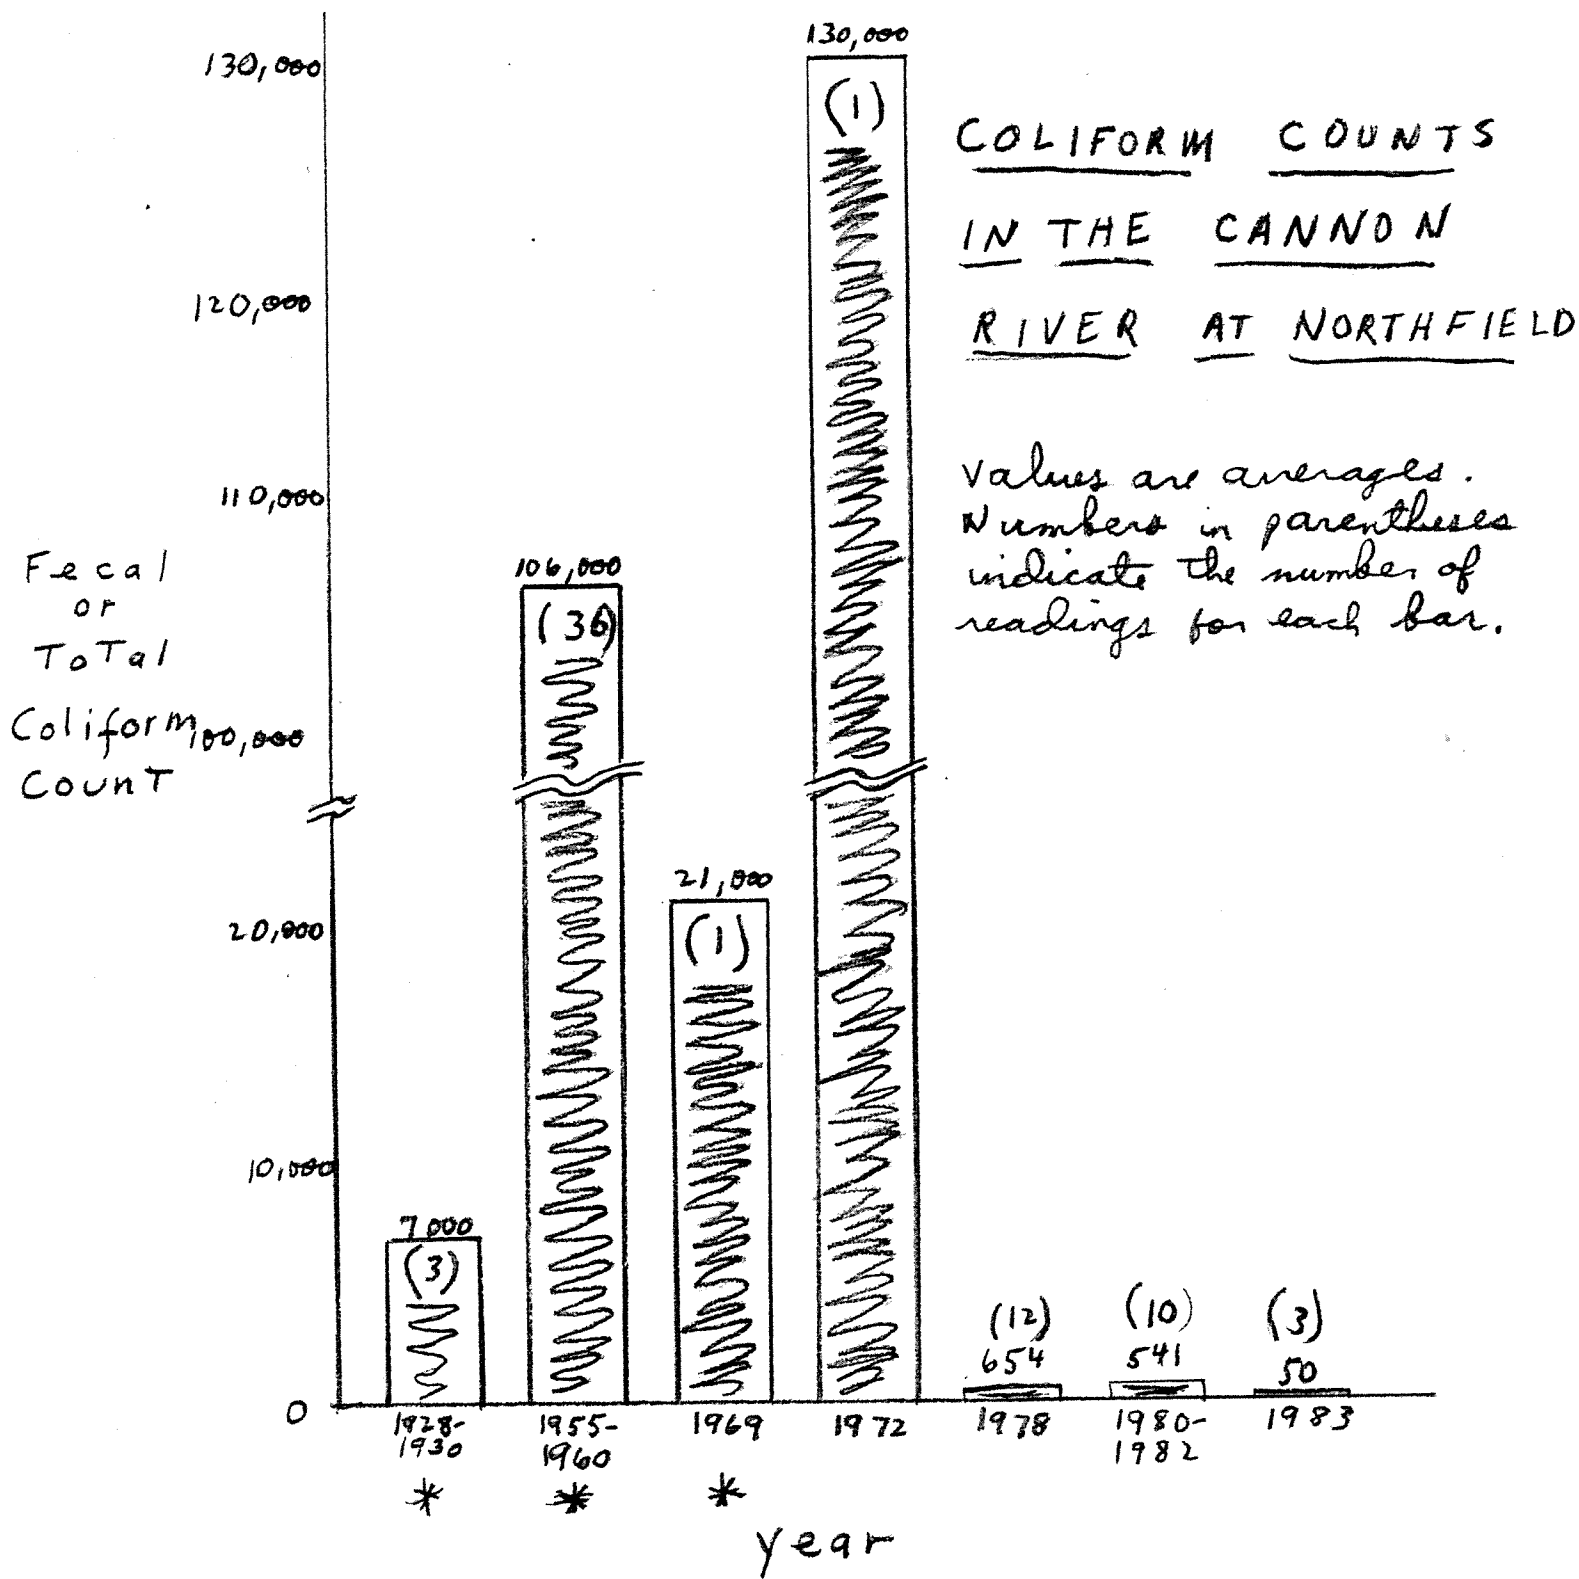 COLIFORM COUNTS
IN THE CANNON
RIVER AT NORTHFIELD
Values are averages.
Numbers in parentheses
indicate the number of
readings for each bar.
Fecal
or
Total
Coliform
Count
130,000
120,000
110,000
100,000
20,000
10,000
0
7000
(3)
106,000
(36)
21,000
(1)
130,000
(1)
(12)
654
(10)
541
(3)
50
1928-
1930
*
1955-
1960
*
1969
*
1972
1978
1980-
1982
1983
year